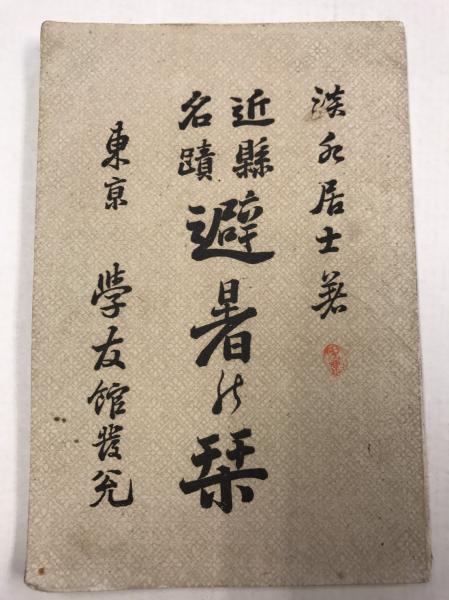 淡水居士著
近縣
名蹟
避暑の栞
東京 學友館發兌